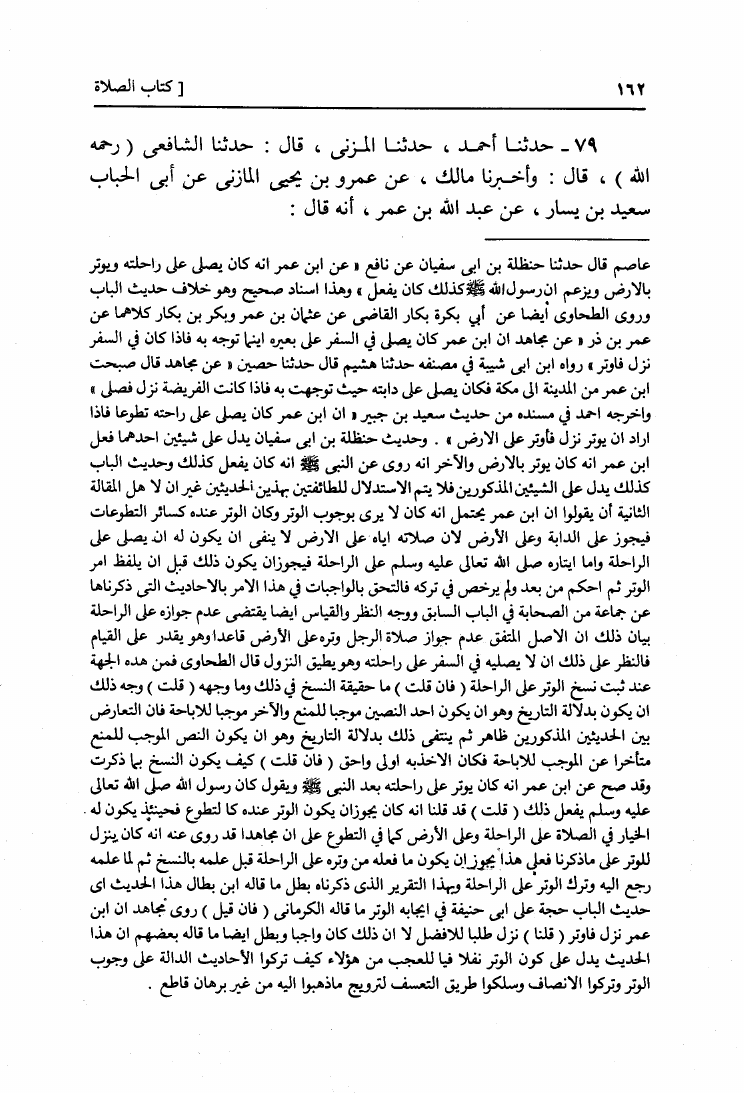 ١٦٢
[ كتاب الصلاة
٧٩ ـ حدثنـا أحمـد ، حدثنـا المـزنى ، قال : حدثنا الشافعى ( رحمه
الله ) ، قال : وأخـبرنا مالك ، عن عمرو بن يحيى المازنى عن أبى الحباب
سعيد بن يسار ، عن عبد الله بن عمر ، أنه قال :
عاصم قال حدثنا حنظلة بن ابى سفيان عن نافع « عن ابن عمر انه كان يصلى على راحلته ويوتر
بالارض ويزعم ان رسول الله ﷺ كذلك كان يفعل » وهذا اسناد صحيح وهو خلاف حديث الباب
وروى الطحاوى أيضا عن أبي بكرة بكار القاضى عن عثمان بن عمر وبكر بن بكار كلاهما عن
عمر بن ذر « عن مجاهد ان ابن عمر كان يصلى في السفر على بعيره اينما توجه به فاذا كان في السفر
نزل فاوتر » رواه ابن ابى شيبة في مصنفه حدثنا هشيم قال حدثنا حصين « عن مجاهد قال صحبت
ابن عمر من المدينة الى مكة فكان يصلى على دابته حيث توجهت به فاذا كانت الفريضة نزل فصلى »
واخرجه احمد في مسنده من حديث سعيد بن جبير « ان ابن عمر كان يصلى على راحته تطوعا فاذا
اراد ان يوتر نزل فأوتر على الارض » . وحديث حنظلة بن ابى سفيان يدل على شيئين احدهما فعل
ابن عمر انه كان يوتر بالارض والآخر انه روى عن النبى ﷺ انه كان يفعل كذلك وحديث الباب
كذلك يدل على الشيئين المذكورين فلا يتم الاستدلال للطائفتين بهذين الحديثين غير ان لا هل المقالة
الثانية أن يقولوا ان ابن عمر يحتمل انه كان لا يرى بوجوب الوتر وكان الوتر عنده كسائر التطوعات
فيجوز على الدابة وعلى الأرض لان صلاته اياه على الارض لا ينفى ان يكون له ان يصلى على
الراحلة واما ايتاره صلى الله تعالى عليه وسلم على الراحلة فيجوزان يكون ذلك قبل ان يلفظ امر
الوتر ثم احكم من بعد ولم يرخص في تركه فالتحق بالواجبات في هذا الامر بالاحاديث التى ذكرناها
عن جماعة من الصحابة في الباب السابق ووجه النظر والقياس ايضا يقتضى عدم جوازه على الراحلة
بيان ذلك ان الاصل المتفق عدم جواز صلاة الرجل وتره على الأرض قاعدا وهو يقدر على القيام
فالنظر على ذلك ان لا يصليه في السفر على راحلته وهو يطيق النزول قال الطحاوى فمن هذه الجهة
عند ثبت نسخ الوتر على الراحلة ( فان قلت ) ما حقيقة النسخ في ذلك وما وجهه ( قلت ) وجه ذلك
ان يكون بدلالة التاريخ وهو ان يكون احد النصين موجبا للمنع والآخر موجبا للاباحة فان التعارض
بين الحديثين المذكورين ظاهر ثم ينتفى ذلك بدلالة التاريخ وهو ان يكون النص الموجب للمنع
متأخرا عن الموجب للاباحة فكان الاخذبه اولى واحق ( فان قلت ) كيف يكون النسخ بما ذكرت
وقد صح عن ابن عمر انه كان يوتر على راحلته بعد النبى ﷺ ويقول كان رسول الله صلى الله تعالى
عليه وسلم يفعل ذلك ( قلت ) قد قلنا انه كان يجوزان يكون الوتر عنده كا لتطوع فحينئذ يكون له
الخيار في الصلاة على الراحلة وعلى الأرض كما في التطوع على ان مجاهدا قد روى عنه انه كان ينزل
للوتر على ماذكرنا فعلى هذا يجوز ان يكون ما فعله من وتره على الراحلة قبل علمه بالنسخ ثم لما علمه
رجع اليه وترك الوتر على الراحلة وبهذا التقرير الذى ذكرناه بطل ما قاله ابن بطال هذا الحديث اى
حديث الباب حجة على ابى حنيفة في ايجابه الوتر ما قاله الكرمانى ( فان قيل ) روى مجاهد ان ابن
عمر نزل فاوتر ( قلنا ) نزل طلبا للافضل لا ان ذلك كان واجبا وبطل ايضا ما قاله بعضهم ان هذا
الحديث يدل على كون الوتر نفلا فيا للعجب من هؤلاء كيف تركوا الأحاديث الدالة على وجوب
الوتر وتركوا الانصاف وسلكوا طريق التعسف لترويج ماذهبوا اليه من غير برهان قاطع .